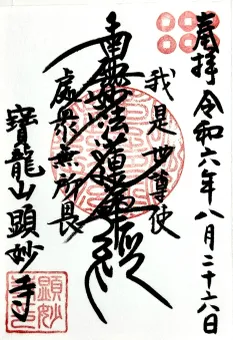 奉拝 令和六年八月二十六日
我是世尊使
南無妙法蓮華経
處衆無所畏
寳龍山顕妙寺